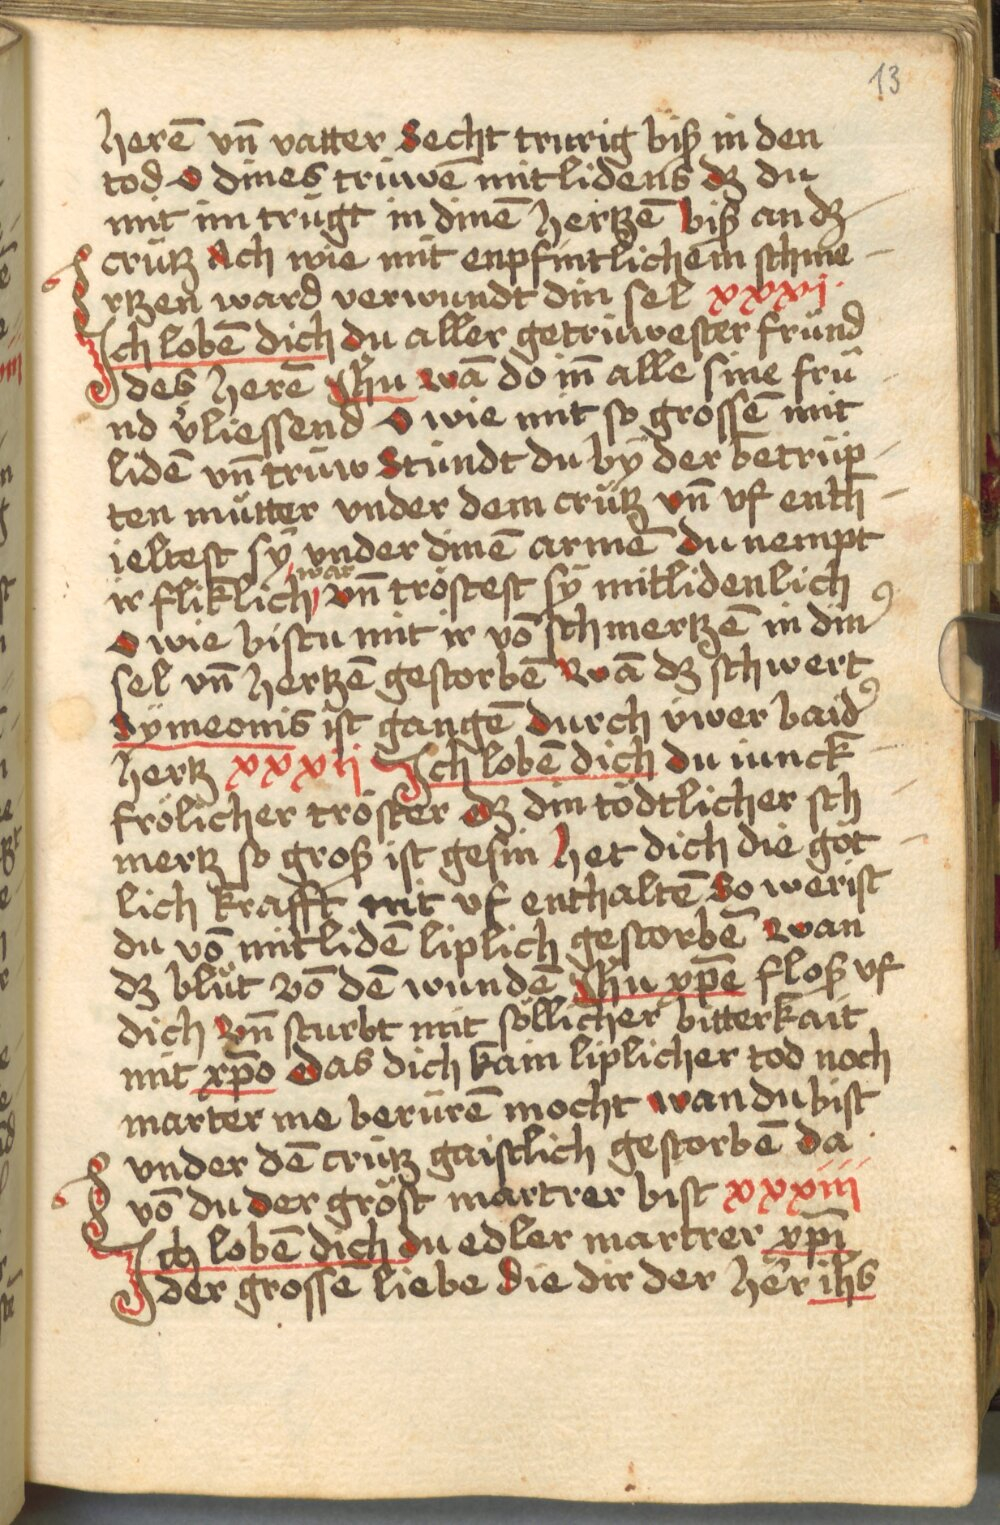 13
herē vn̄ vatter Secht trurig biß in den
tod O dines triuwē mitlidens dz du
mit im trügt in dinē hertzē biß an dz
crütz Ach wie mit enpfintlichem schme
rtzen ward verwundt din sel xxxi.
Ich lobē dich du aller getriuwester fründ
des herē ihu wā do in̄ alle sine frü
nd v̉liessend O wie mit so grossē mit
lidē vn̄ trüw Stündt du bÿ der betrüp
ten mu̇tter vnder dem crütz vn̄ vf enth
ieltest sÿ vnder dinē armē du nempt
war
ir fliklich vn̄ tröstest sÿ mitlidenlich
O wie bistu mit ir vō schmertzē in din̉
sel vn̄ hertzē gestorbē Wā dz schwert
Sÿmeonis ist gangē durch üwer baid̉
hertz xxxij Ich lobē dich du iunck
frölicher tröster dz din tödtlicher sch
mertz so groß ist gesin het dich die göt
lich krafft nit vf enthaltē So werist
du vō mitlidē liplich gestorbē Wan
dz blu̇t vō dē wundē ihu xp̄e floß vf
dich vn̄ sturbt mit söllicher bitterkait
mit xp̄o Das dich kain liplicher tod noch
marter me berürē mocht wan du bist
vnder dē crütz gaistlich gestorbē da
vō du der gröst martrer bist xxxiii
Ich lobē dich du edler martrer xp̄i
der grosse liebe Die dir der hēr ihs